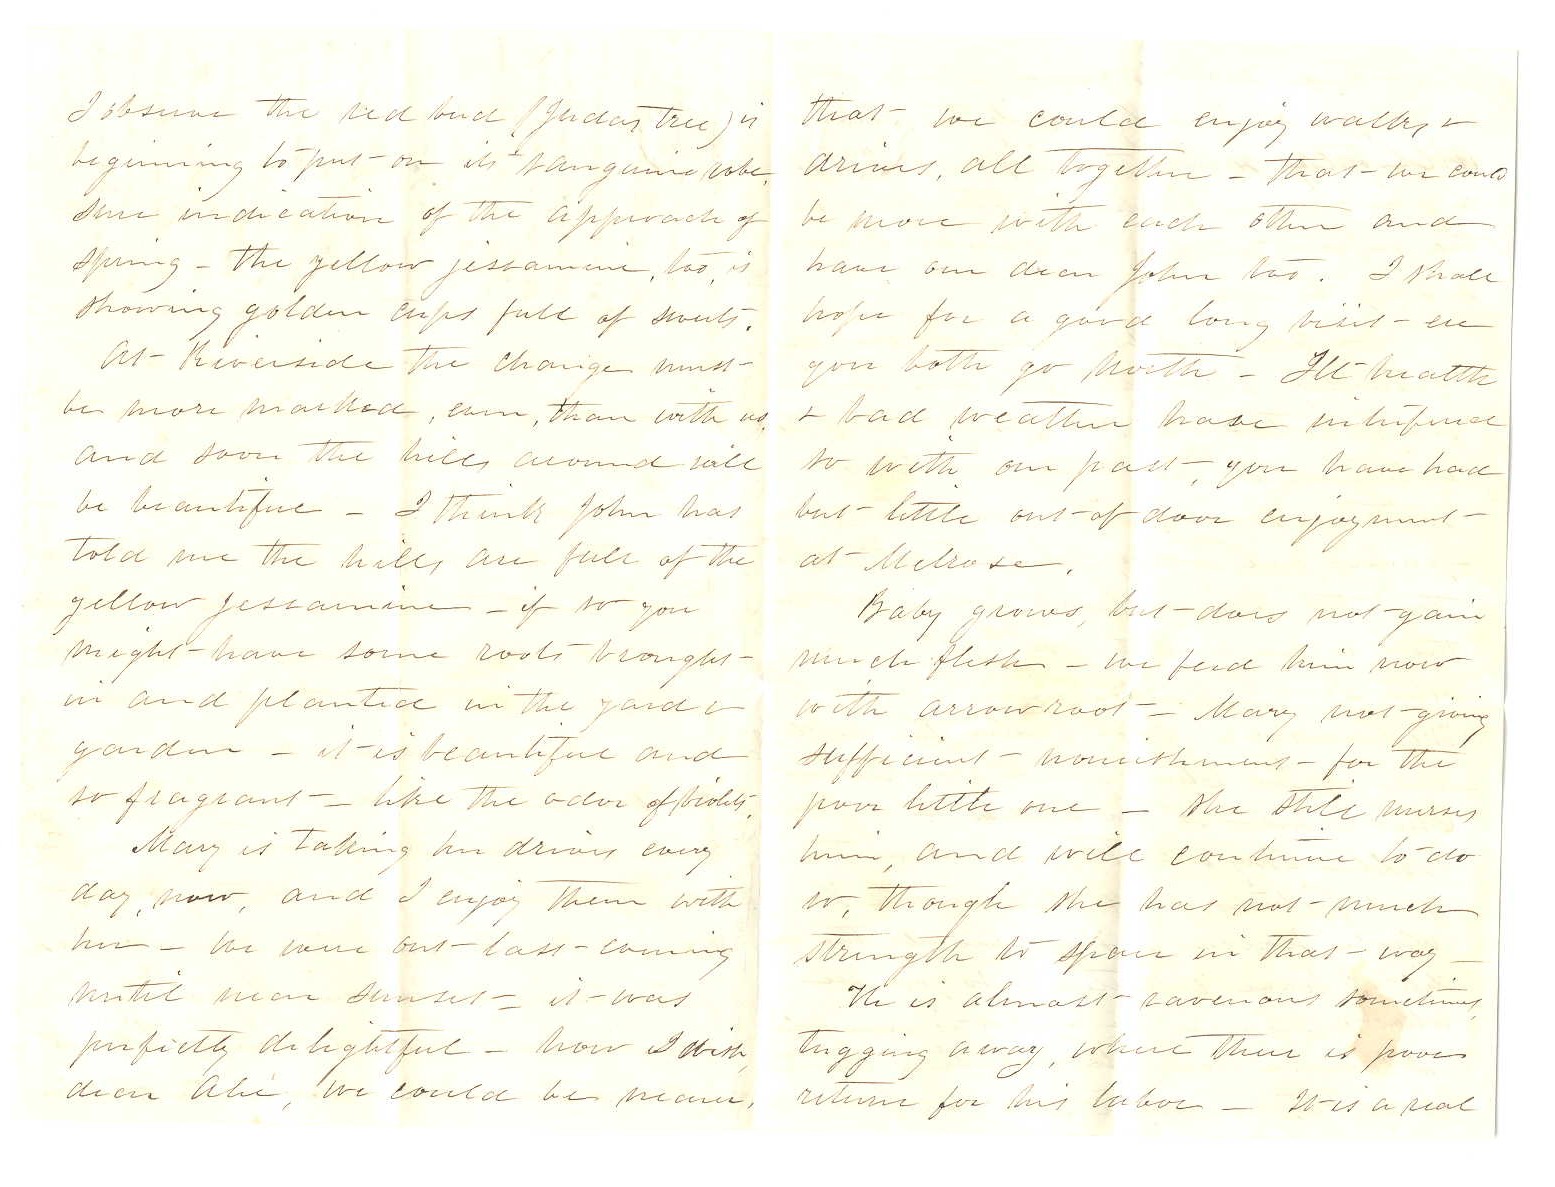 I observe the red bud (Judas tree) is
beginning to put on its sanguine robe,
sure indication of the approach of
spring – the yellow jessamine, too, is
showing golden cups full of sweets.
At Riverside the change must
be more marked, even, than with us,
and soon the hills around will
be beautiful – I think John has
told me the hills are full of the
yellow jessamine – if so you
might have some roots brought
in and planted in the yard &
garden – it is beautiful and
so fragrant – like the odor of violets.
Mary is taking her drives every
day, now, and I enjoy them with
her – we were out last evening
until near sunset – it was
perfectly delightful – how I wish,
dear Abie, we could be nearer,
that we could enjoy walks &
drives, all together – that we could
be more with each other and
have our dear John too. I shall
hope for a good long visit ere
you both go North – Ill health
& bad weather have interfered
so with our past, you have had
but little out of door enjoyment
at Melrose.
Baby grows, but does not gain
much flesh – we feed him now
with arrowroot – Mary not giving
sufficient nourishment for the
poor little one – she still nurses
him, and will continue to do
so, though she has not much
strength to spare in that way –
He is almost ravenous sometimes,
tugging away, where there is poor
return for his labor – It is a real